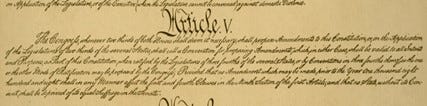 on Application of the Legislature, or of the Executive (when the Legislature cannot be convened) against domestic Violence.
Article. V.
The Congress, whenever two thirds of both Houses shall deem it necessary, shall propose Amendments to this Constitution, or, on the Application
of the Legislatures of two thirds of the several States, shall call a Convention for proposing Amendments, which, in either Case, shall be valid to all Intents
and Purposes, as Part of this Constitution, when ratified by the Legislatures of three fourths of the several States, or by Conventions in three fourths thereof, as the one
or the other Mode of Ratification may be proposed by the Congress; Provided that no Amendment which may be made prior to the Year One thousand eight
hundred and eight shall in any Manner affect the first and fourth Clauses in the Ninth Section of the first Article; and that no State, without its Con-
sent, shall be deprived of its equal Suffrage in the Senate.